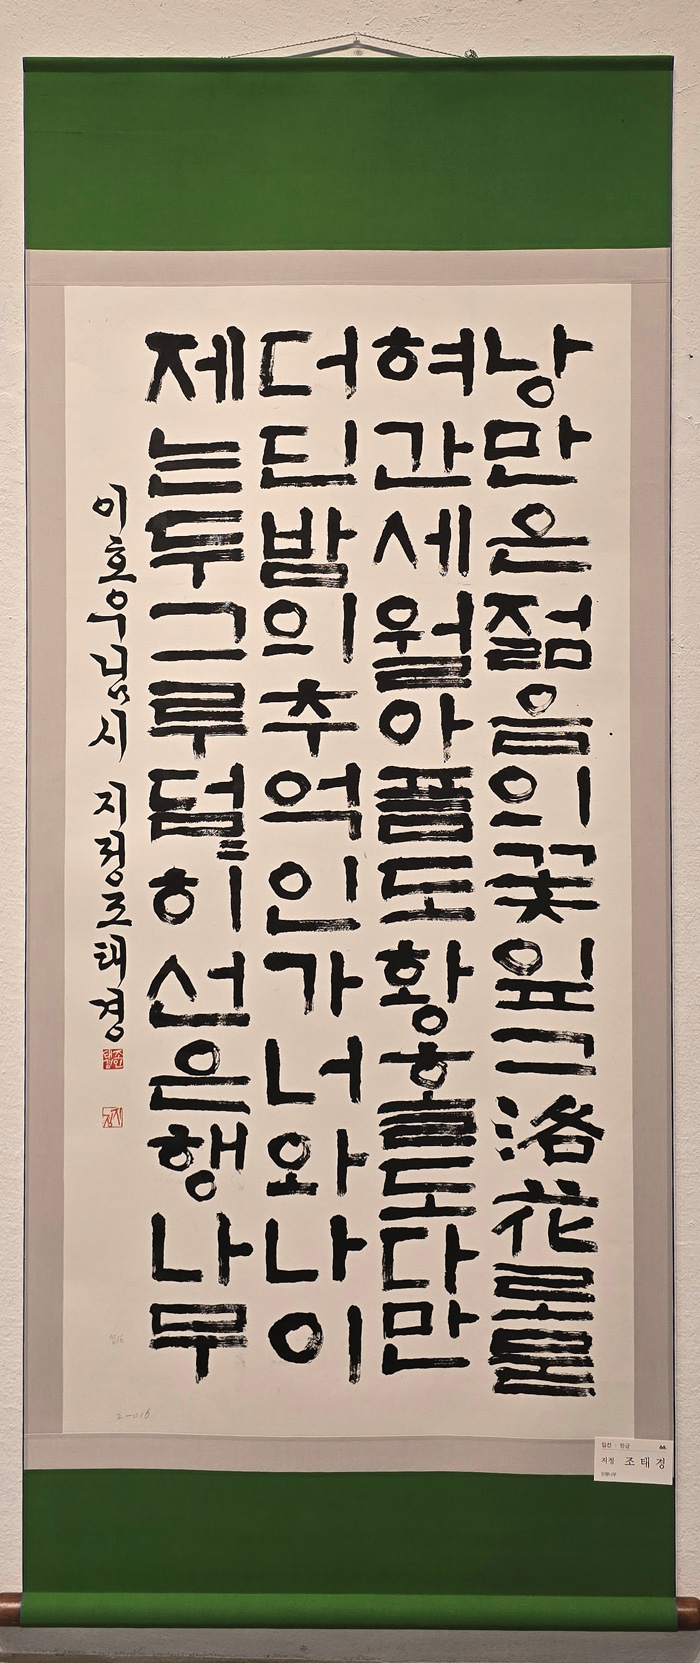 낭만은젊음의꽃잎그洛花로묻
혀간세월아픔도황홀도다만
더딘밤의추억인가너와나이
제는두그루덤〃히선은행나무
이호우님시 지정조태경
2-016
입선 한글
지정 조태경
은행나무